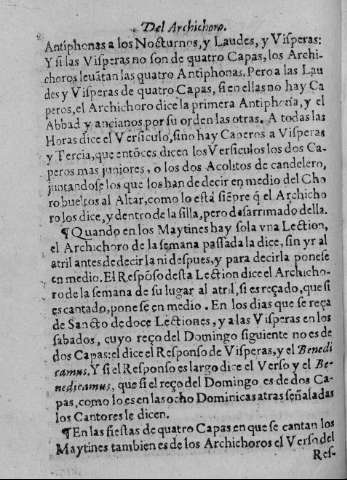 Del Archichoro.
Antiphonas a los Nocturnos, y Laudes, y Visperas:
Y si las Visperas no son de quatro Capas, los Archi-
choros levātan las quatro Antiphonas. Pero a las Lau
des y Visperas de quatro Capas, si en ellas no hay Ca
peros, el Archichoro dice la primera Antiphona, y el
Abbad y ancianos por su orden las otras. A todas las
Horas dice el Versiculo, sino hay Caperos a Visperas
y Tercia, que entōces dicen los Versiculos los dos Ca-
peros mas juniores, o los dos Acolitos de candelero,
juntandose los que los han de decir en medio del Cho
ro bueltos al Altar, como lo està siēpre q̄ el Archicho
ro los dice, y dentro de la silla, pero desarrimado della.
¶ Quando en los Maytines hay sola vna Lection,
el Archichoro de la semana passada la dice, sin yr al
atril antes de decirla ni despues, y para decirla ponese
en medio. El Respōso desta Lection dice el Archicho-
ro de la semana de su lugar al atril, si es reçado, que si
es cantado, ponese en medio. En los dias que se reça
de Sancto de doce Lectiones, y a las Visperas en los
sabados, cuyo reço del Domingo siguiente no es de
dos Capas: el dice el Responso de Visperas, y el Benedi
camus. Y si el Responso es largo dice el Verso y el Be-
nedicamus, que si el reço del Domingo es de dos Ca-
pas, como lo es en las ocho Dominicas atras señaladas
los Cantores le dicen.
¶ En las fiestas de quatro Capas en que se cantan los
Maytines tambien es de los Archichoros el Verso del
Res-